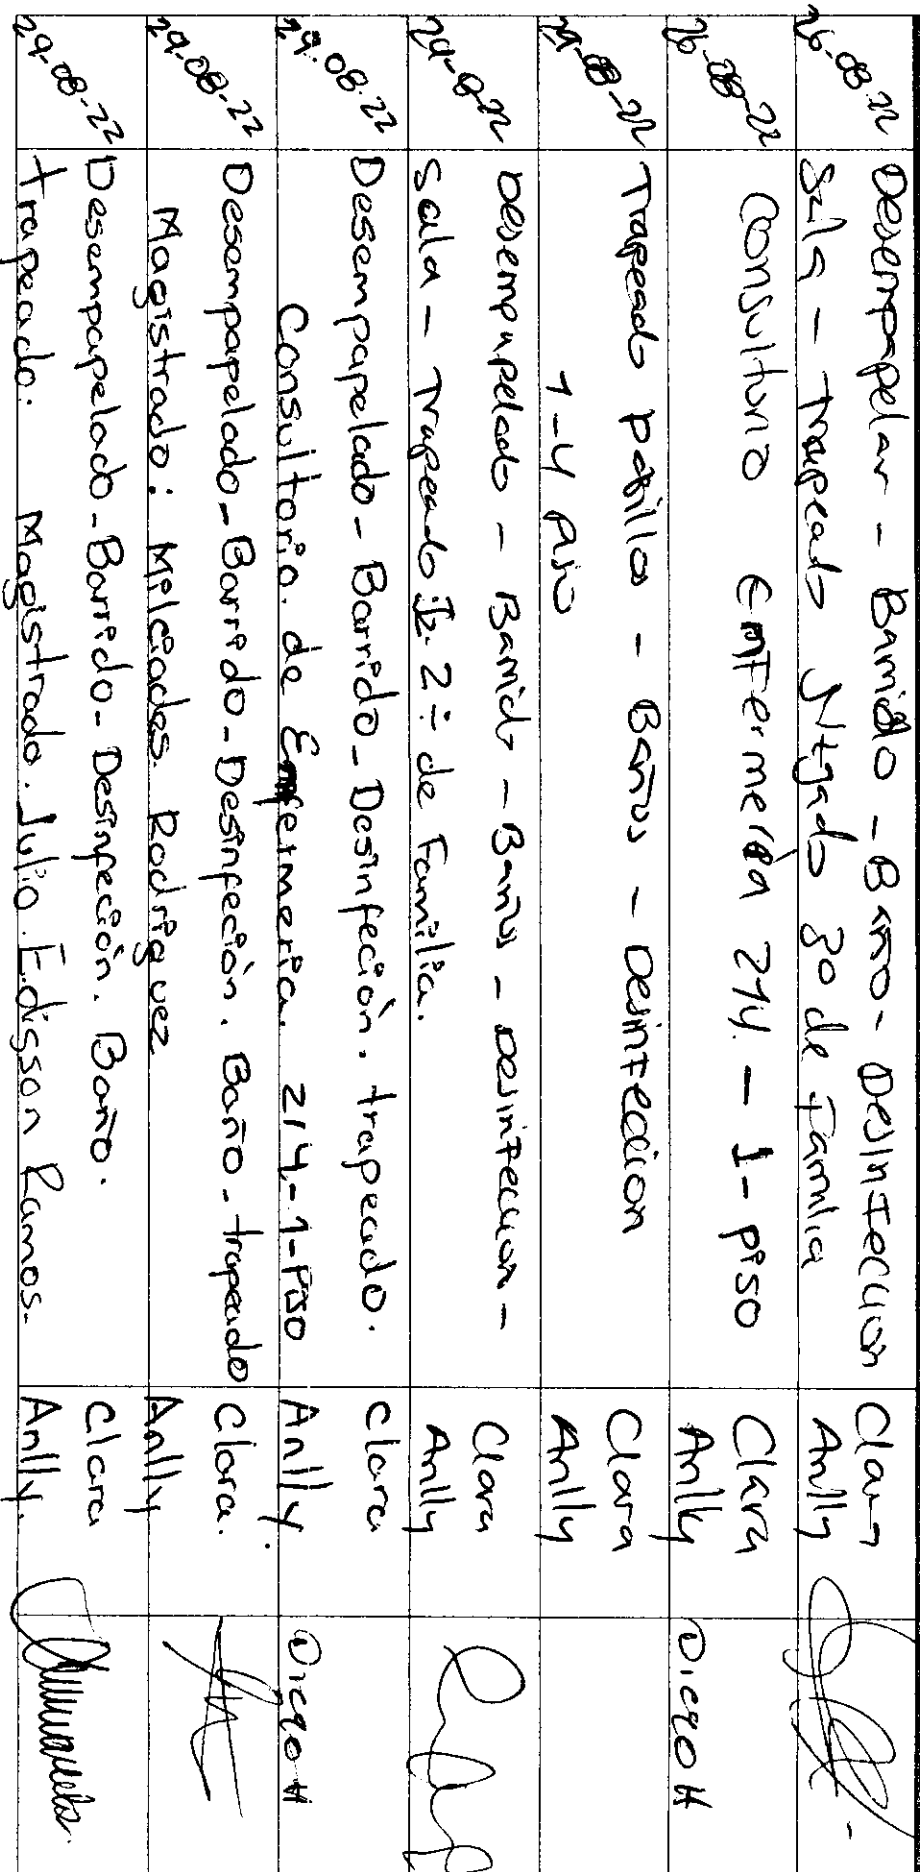 26-08-22 Desempapelar - Barrido - Baño - Desinfeccion Clara
Sala - Trapeado Juzgado 3o de Familia Anlly
26-08-22 Consultorio Enfermeria 214 - 1-piso Clara
Anlly Diego H
29-08-22 Trapeado pasillos - Baños - Desinfeccion Clara
1-4 piso Anlly
29-8-22 Desempapelado - Barrido - Baños - Desinfeccion - Clara
Sala - Trapeado 2: de Familia. Anlly
29.08.22 Desempapelado - Barrido - Desinfeción. trapeado. Clara
Consultorio. de Enfermeria. 214-1-Piso Anlly. Diego H
29.08.22 Desempapelado - Barrido - Desinfeción. Baño - trapeado Clara.
Magistrado: Milciades. Rodriguez Anlly
29-08-22 Desempapelado - Barrido - Desinfeción. Baño. Clara
trapeado. Magistrado. Julio. Edisson Ramos. Anlly.